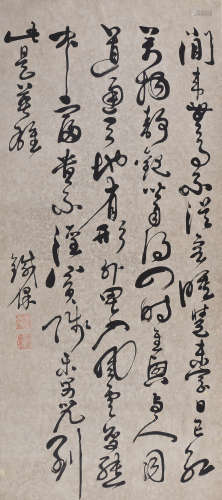 閒來無事不從容睡覺東窗日已紅
萬物靜觀皆自得四時佳興與人同
道通天地有形外思入風雲變態
中富貴不淫貧賤樂男兒到
此是英雄
鐵保